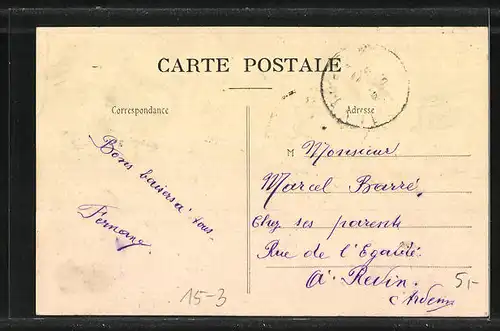 CARTE POSTALE
Correspondance
Adresse
Bons baisers à tous.
Fernand
M Monsieur
Marcel Barré
Chez ses parents
Rue de l'Egalité
à Revin
Ardennes
15-3
5,-